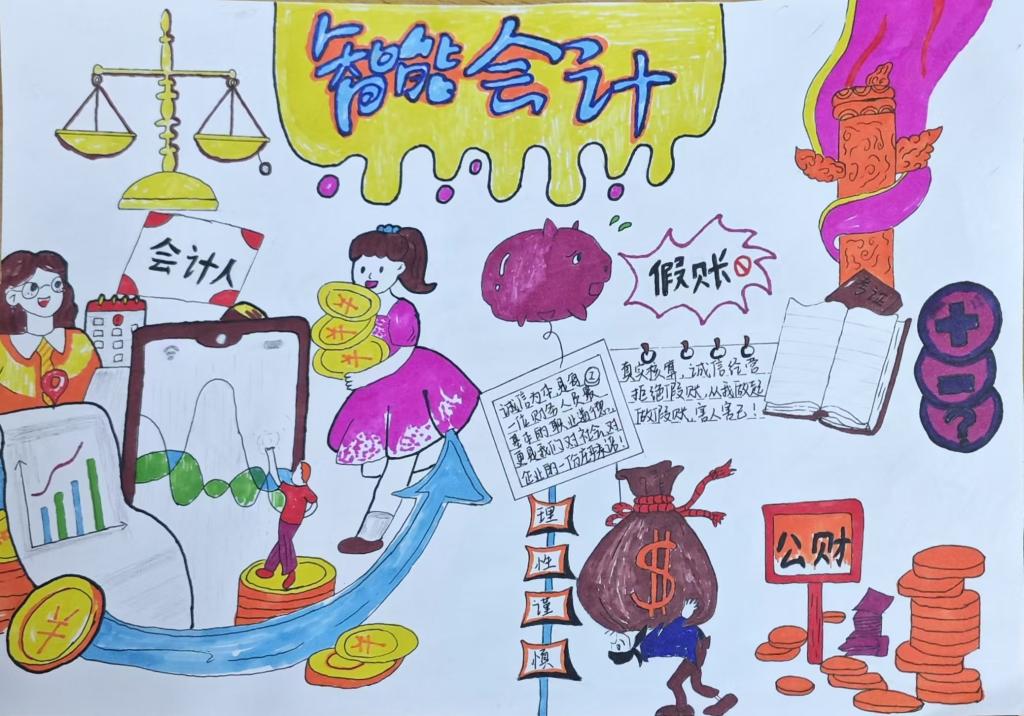 智能会计
会计人
假账
考证
诚信为本是每
一位财务人员最
真正的职业道德,
更是我们对社会、对
企业的一份承诺!
真实核算,诚信经营
拒绝假账,从我做起
做假账,害人害己!
理
性
谨
慎
$
公财
¥